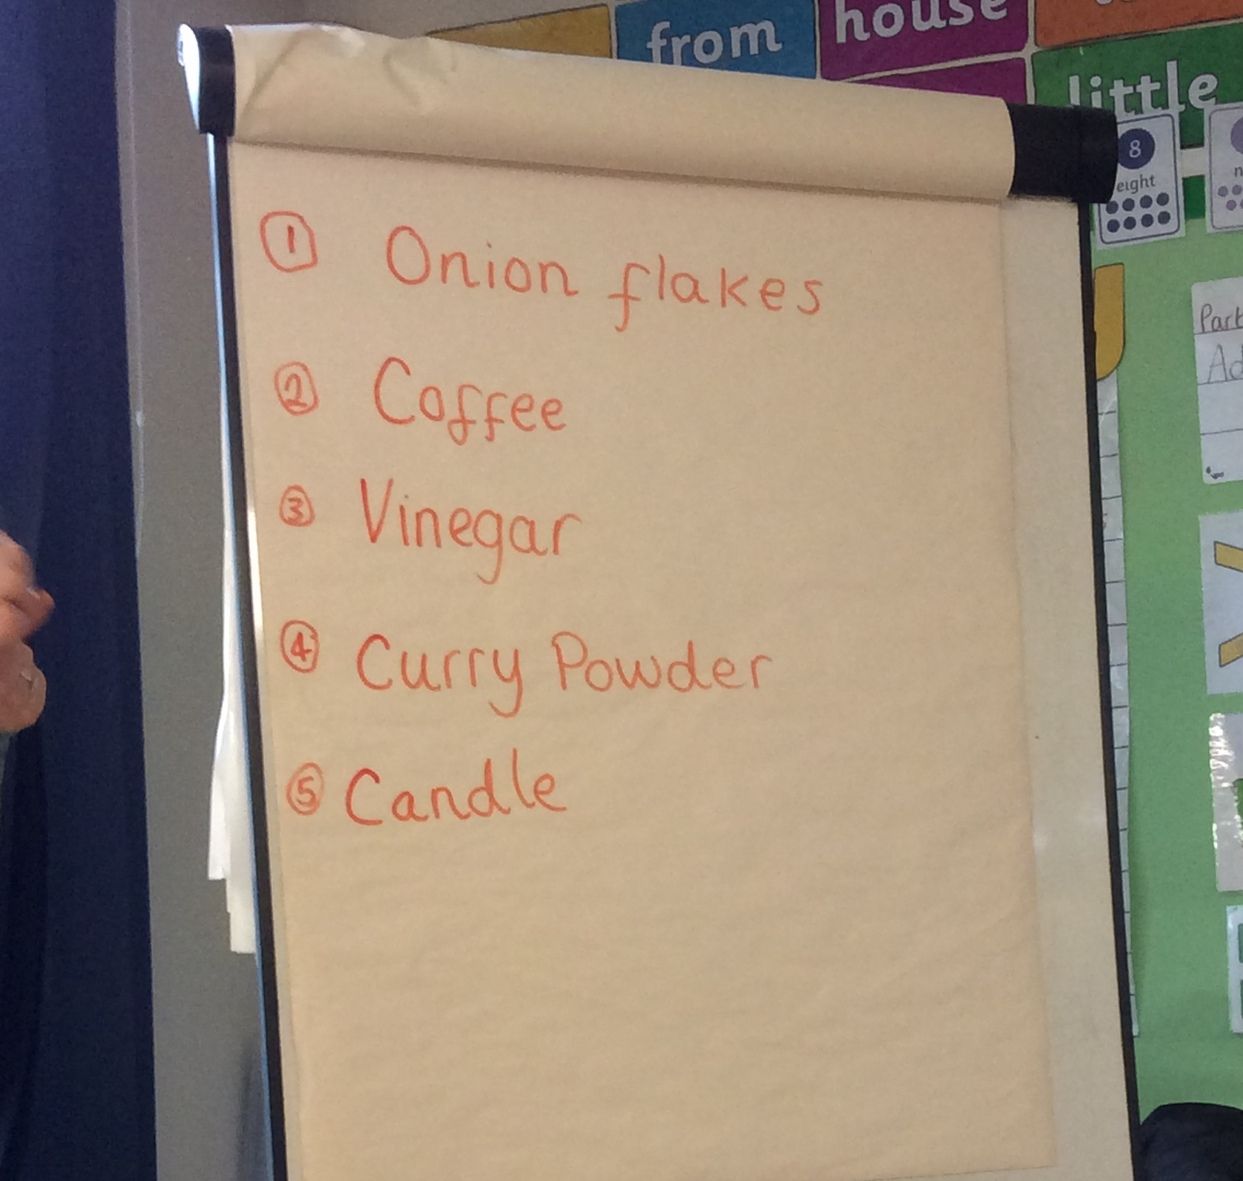 from
house
little
8
eight
① Onion flakes
② Coffee
③ Vinegar
④ Curry Powder
⑤ Candle